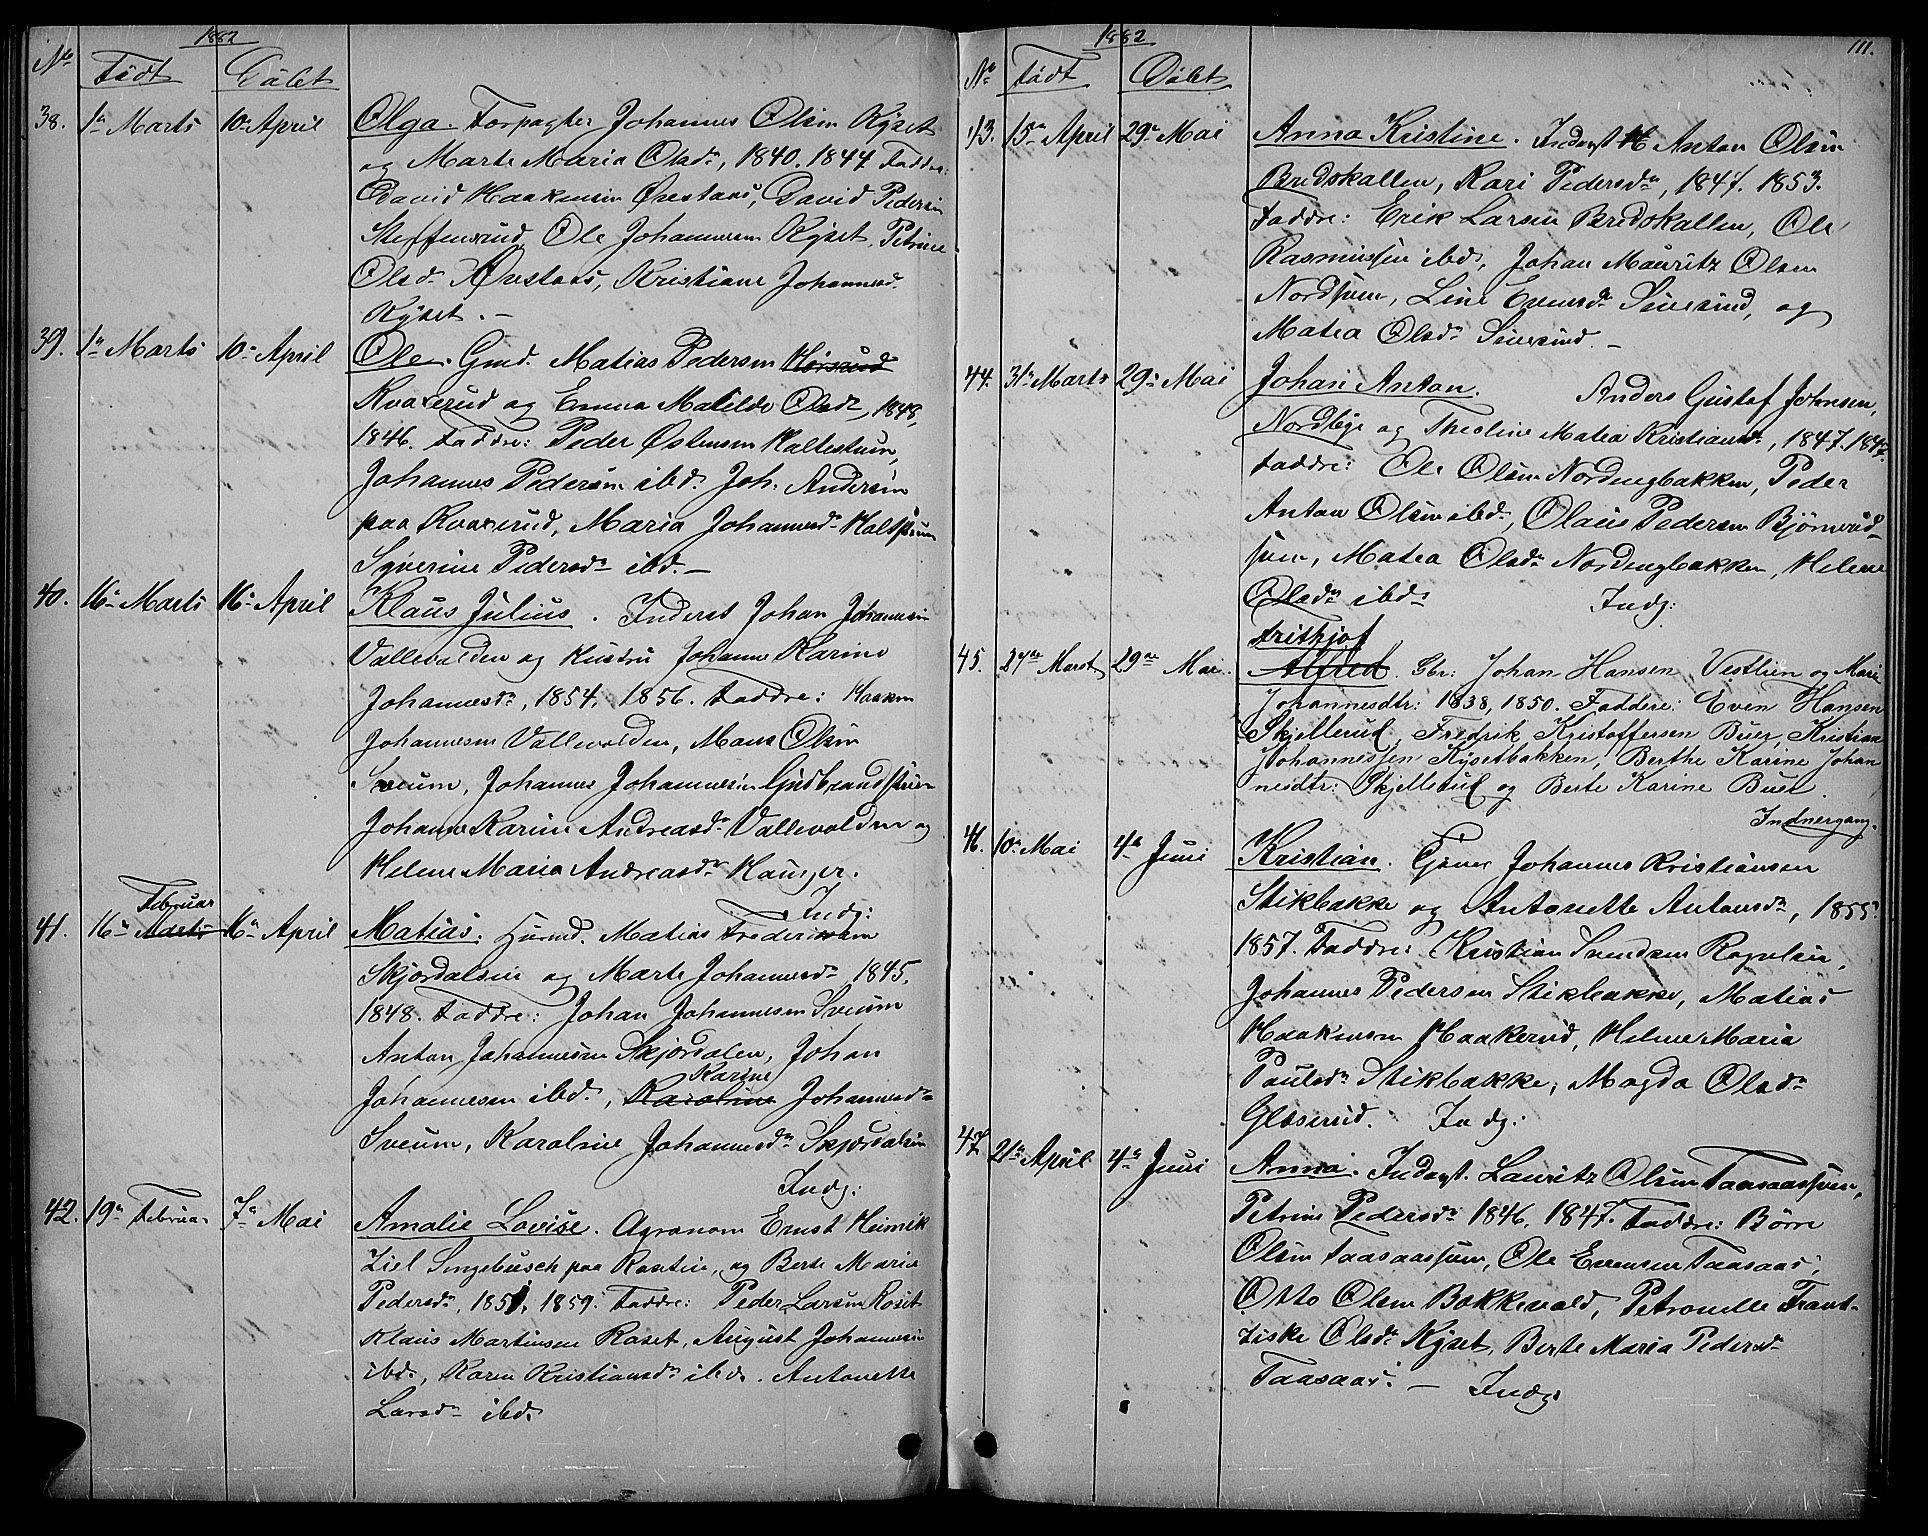 1882
No Födt Döbt
38. 1ste Marts 10de April Olga. Forpagter Johannes Olsen Kyset
og Marte Maria Olsdr, 1840. 1844 Faddre:
David Haakensen Øvestaas, David Pedersen
Steffensrud, Ole Johannesen Kyset, Petrine
Olsdr Øvestaas, Kristiane Johannesdr
Kyset. –
39. 1ste Marts 10de April Ole. Gmd. Matias Pedersen Hörsrud
Kvaxerud og Emma Matilde Olsdr, 1848,
1846. Faddre: Peder Østensen Haltestuen,
Johannes Pedersen ibd. Joh. Andersen
paa Kvaxerud, Maria Johannesdr Haltstuen
Syverine Pedersdr ibd. –
40. 16de Marts 16de April Klaus Julius. Inderst Johan Johannesen
Vallevolden og Hustru Johanne Karine
Johannesdr, 1854, 1856. Faddre: Haaken
Johannesen Vallevolden, Mons Olsen
Sveum, Johannes Johannesen Gudbrandstuen
Johanne Karine Andreasdr Vallevolden og
Helene Maria Andreasdr Hauger.
Indg:
Februar
41. 16de Marts 16de April Matias. Husmd. Matias Frederiksen
Skjördalsen og Marte Johannesdr 1845.
1848. Faddre: Johan Johannesen Sveum
Anton Johannesen Skjördalen, Johan
Karine
Johannesen ibd., Karoline Johannesdr
Sveum, Karoline Johannesdr Skjördalen
Indg:
42. 19de Februar 7de Mai Amalie Lovise. Agronom Ernst Heinrik
Ziel Sengebusch paa Rostin, og Berte Marie
Pedersdr, 1851, 1859. Faddre: Peder Larsen Roset
Klaus Martinsen Roset, August Johannesen
ibd., Karen Kristiansdr ibd. Antonette
Larsdr ibd.
1882 111.
No Födt Döbt
43. 15de April 29de Mai Anna Kristine. Inderst Anton Olsen
Bredskallen, Kari Pedersdr, 1847. 1853.
Faddre: Erik Larsen Bredskallen, Ole
Rasmussen ibd., Johan Mauritz Olsen
Nordsveen, Line Evensdr Siversrud, og
Matea Olsdr Siversrud. –
44. 31te Marts 29de Mai Johan Anton. Anders Gustaf Johnsen,
Nordbye og Theoline Matea Kristiansdr, 1847. 1847.
Faddre: Ole Olsen Nordengbakken, Peder
Anton Olsen ibd., Olaus Pedersen Björnerud-
sveen, Matea Olsdr Nordengbakken, Helene
Olsdr ibd. Indg:
Frithjof
45. 27de Marst 29de Mai. Alfred. Gbr: Johan Hansen Vestlien og Mari
Johannesdtr: 1838, 1850. Faddere: Even Hansen
Skjellerud, Fredrik Kristoffersen Buer, Kristian
Johannessen Kysetbakken, Berthe Karine Johan
nesdtr: Skjellerud og Berte Karine Buer.
Indnergang.
46. 10de Mai 4de Juni Kristian. Tjener Johannes Kristiansen
Stikbakke og Antonette Antonsdr, 1855.
1857. Faddre: Kristian Svendsen Rognlien,
Johannes Pedersen Stikbakke, Matias
Haakensen Haakerud, Helene Maria
Paulsdr Stikbakke, Magda Olsdr
Glæserud. Indg:
47. 21de April 4de Juni Anna. Inderst. Lauritz Olsen Taasaassveen,
Petrine Pedersdr 1846, 1847. Faddre: Börre
Olsen Taasaassveen, Ole Evensen Taasaas,
Otto Olsen Bakkevold, Petronelle Frant-
ziske Olsdr Kyset, Berte Maria Pedersdr
Taasaas. – Indg